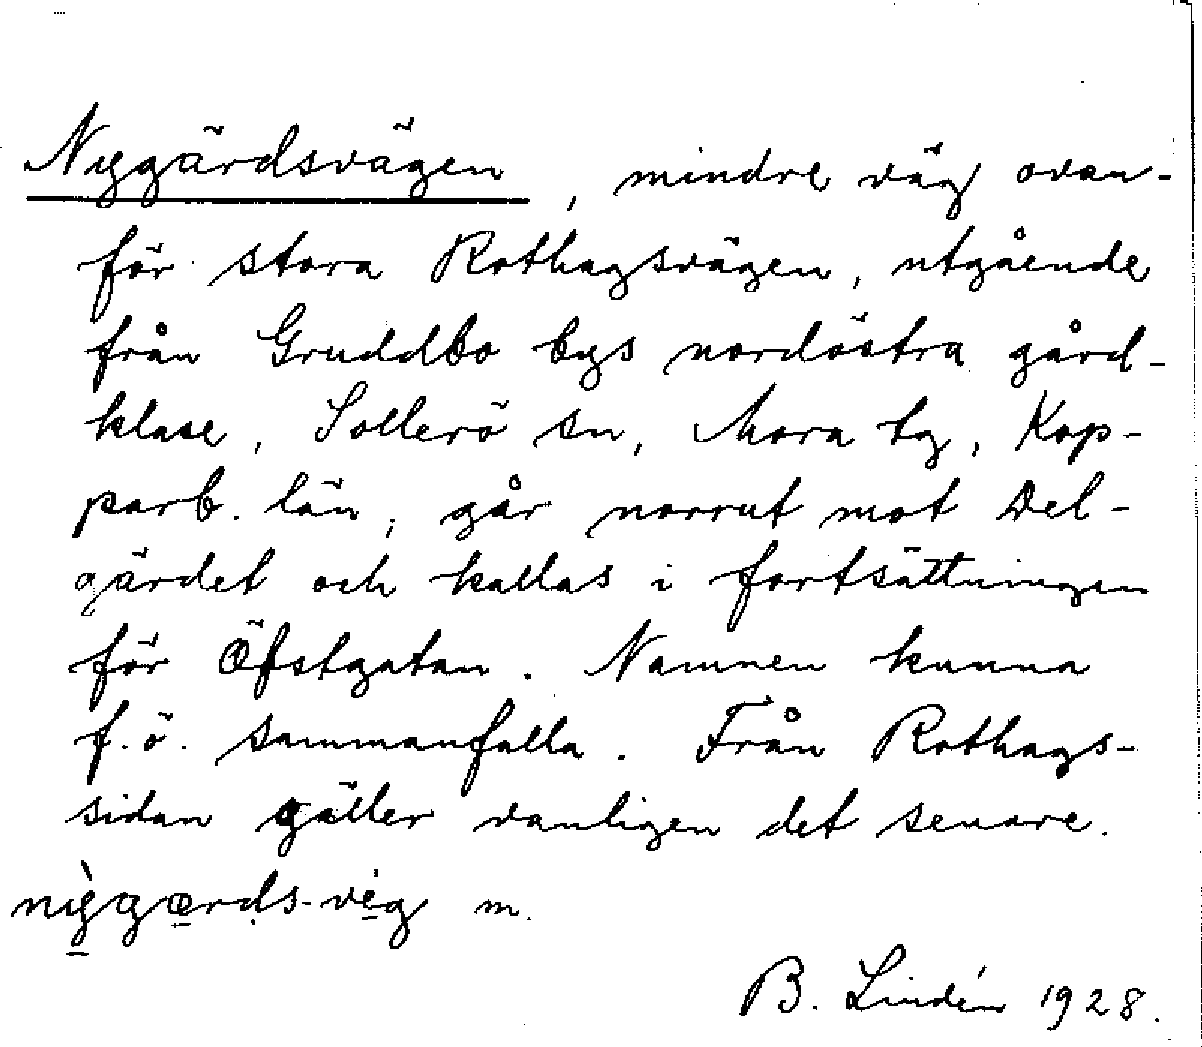 Nygärdsvägen, mindre väg ovan-
för stora Rothagsvägen, utgående
från Gruddbo bys nordöstra gård-
klase, Sollerö sn, Mora tg, Kop-
parb. län, går norrut mot Del-
gärdet och kallas i fortsättningen
för Öfstgatan. Namnen kunna
f. ö. sammanfalla. Från Rothags-
sidan gäller vanligen det senare.
m.
B. Lindén 1928.